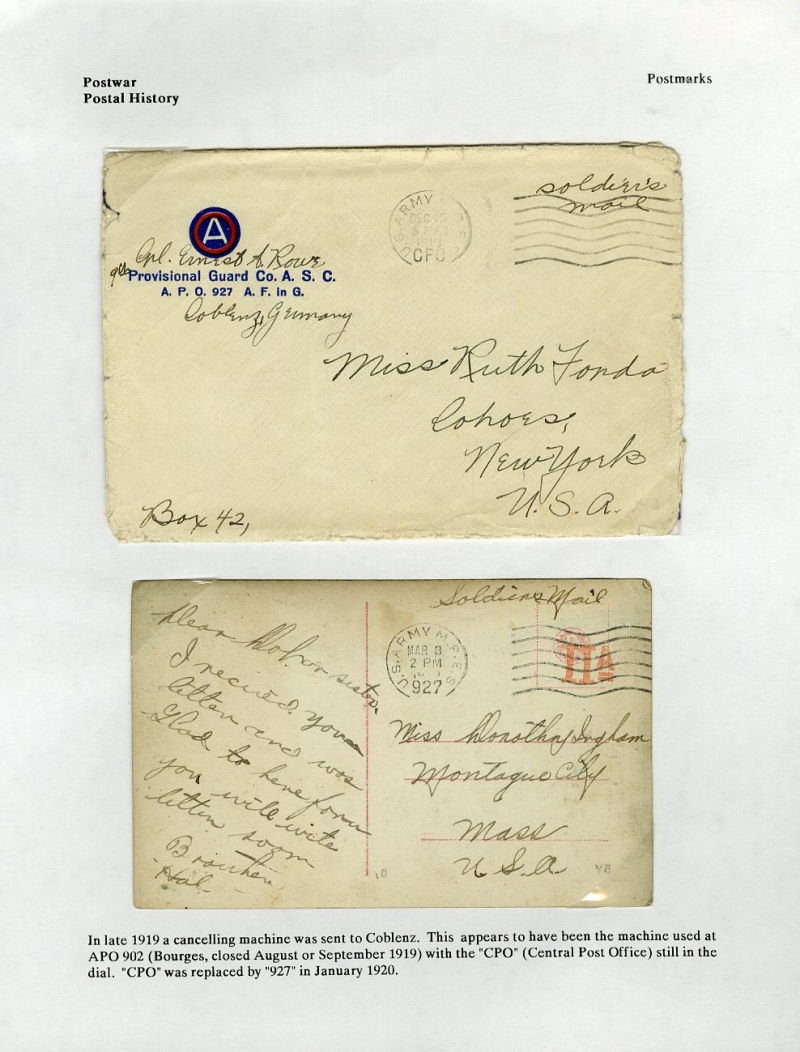 Postwar
Postal History
Postmarks
soldier's
mail
U.S. ARMY M.P.E.S.
DEC
1919
CPO
A
Cpl. Ernest A. Rowe
9th Provisional Guard Co. A. S. C.
A. P. O. 927 A. F. in G.
Coblenz, Germany
Miss Ruth Fonda
Cohoes,
New York
U. S. A.
Box 42,
Soldiers Mail
U.S. ARMY M.P.E.S.
MAR 8
2 PM
927
IIA
Dear sister
I recived your
letter and was
Glad to here form
you will write
letter soom
Brouther
Hal-
Miss Dorothy Ingham
Montague City
Mass
U S. A
10
In late 1919 a cancelling machine was sent to Coblenz. This appears to have been the machine used at
APO 902 (Bourges, closed August or September 1919) with the "CPO" (Central Post Office) still in the
dial. "CPO" was replaced by "927" in January 1920.